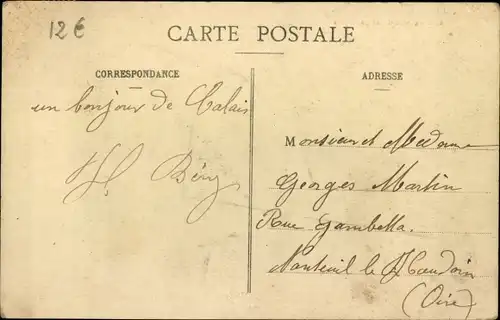 12€
CARTE POSTALE
CORRESPONDANCE
un bonjour de Calais
H. Béry
ADRESSE
Monsieur et Madame
Georges Martin
Rue Gambetta.
Nanteuil le Haudoin
(Oise)